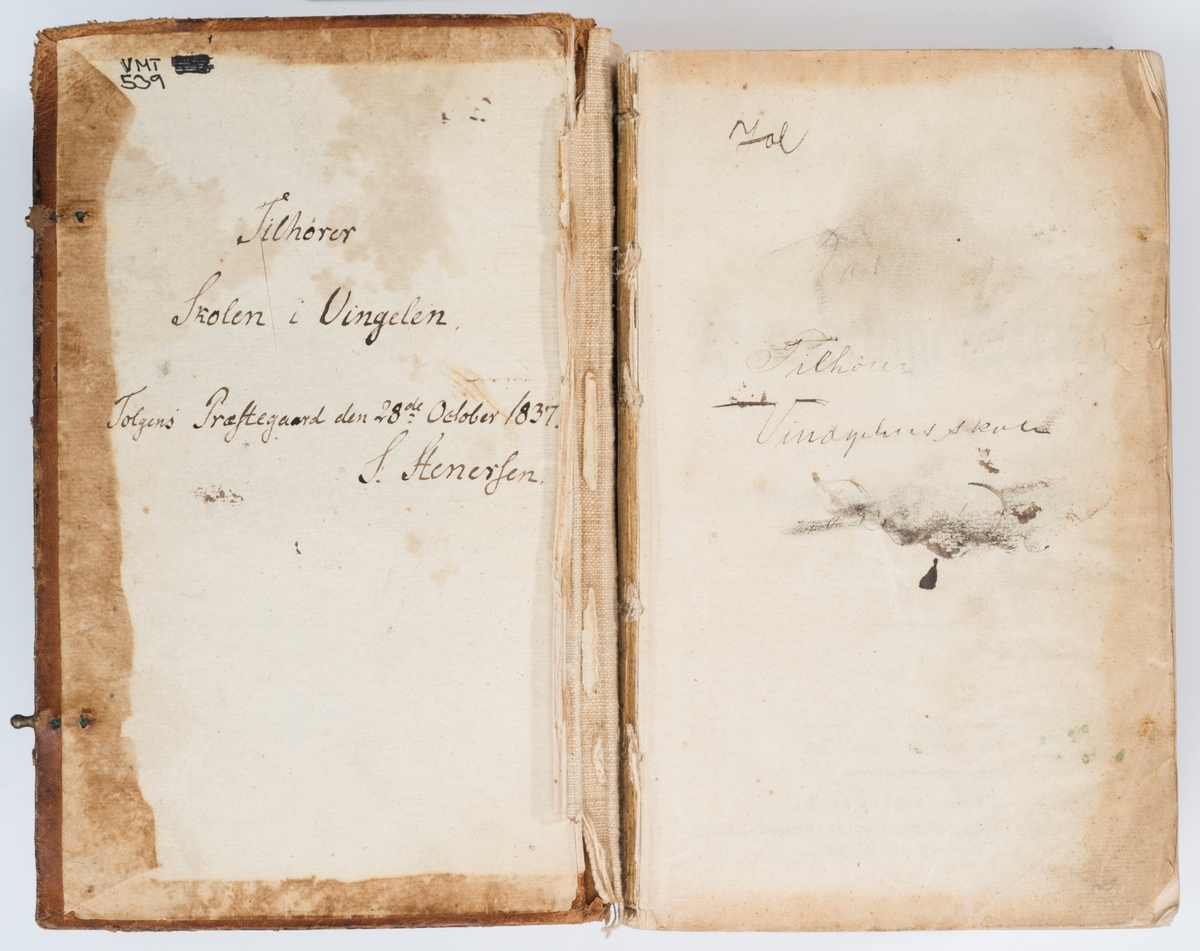 VMT
539
Tilhører
Skolen i Vingelen.
Tolgens Præstegaard den 28de October 1837.
S. Stenersen.
Tilhører
Vindgelens skole